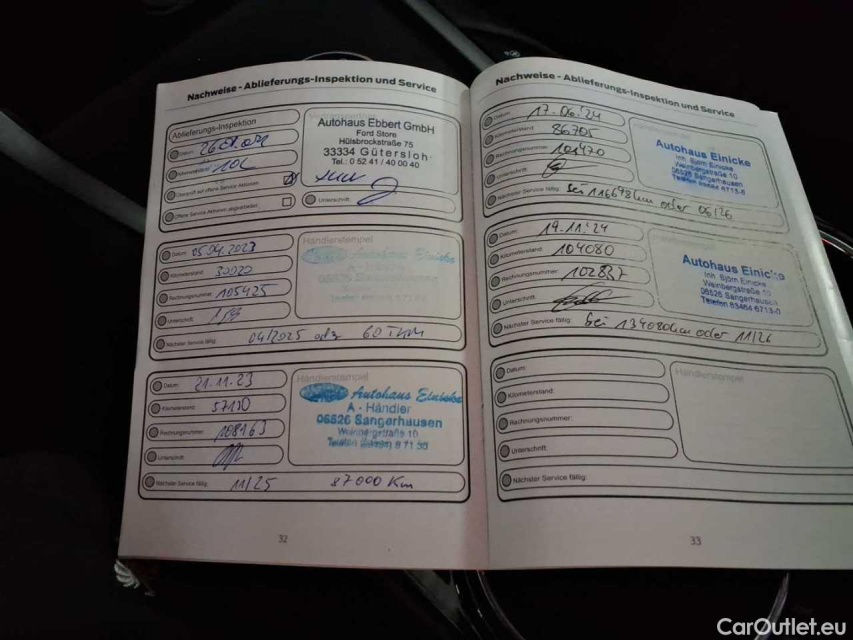 Nachweise - Ablieferungs-Inspektion und Service
Ablieferungs-Inspektion
Datum:
Kilometerstand: 10L
Überprüft auf offene Service-Aktionen
Offene Service-Aktionen abgearbeitet
Autohaus Ebbert GmbH
Ford Store
Hülsbrockstraße 75
33334 Gütersloh
Tel.: 0 52 41 / 40 00 40
Unterschrift:
Datum: 05.04.2023
Kilometerstand: 30020
Rechnungsnummer: 105425
Unterschrift:
Händlerstempel
Autohaus Einicke
A - Händler
06526 Sangerhausen
Nächster Service fällig: 04/2025 odr 60 Tkm
Datum: 21.11.23
Kilometerstand: 57130
Rechnungsnummer: 108163
Unterschrift:
Händlerstempel
Autohaus Einicke
A - Händler
06526 Sangerhausen
Weinbergstraße 10
Nächster Service fällig: 11/25 87000 Km
32
Nachweise - Ablieferungs-Inspektion und Service
Datum: 17.06.24
Kilometerstand: 86705
Rechnungsnummer: 101470
Unterschrift:
Autohaus Einicke
Inh. Björn Einicke
Weinbergstraße 10
06526 Sangerhausen
Telefon 03464 6713-0
Nächster Service fällig: bei 116698 km oder 06/26
Datum: 19.11.24
Kilometerstand: 104080
Rechnungsnummer: 102837
Unterschrift:
Autohaus Einicke
Inh. Björn Einicke
Weinbergstraße 10
06526 Sangerhausen
Telefon 03464 6713-0
Nächster Service fällig: bei 134080km oder 11/26
Datum:
Kilometerstand:
Rechnungsnummer:
Unterschrift:
Händlerstempel
Nächster Service fällig:
33
CarOutlet.eu